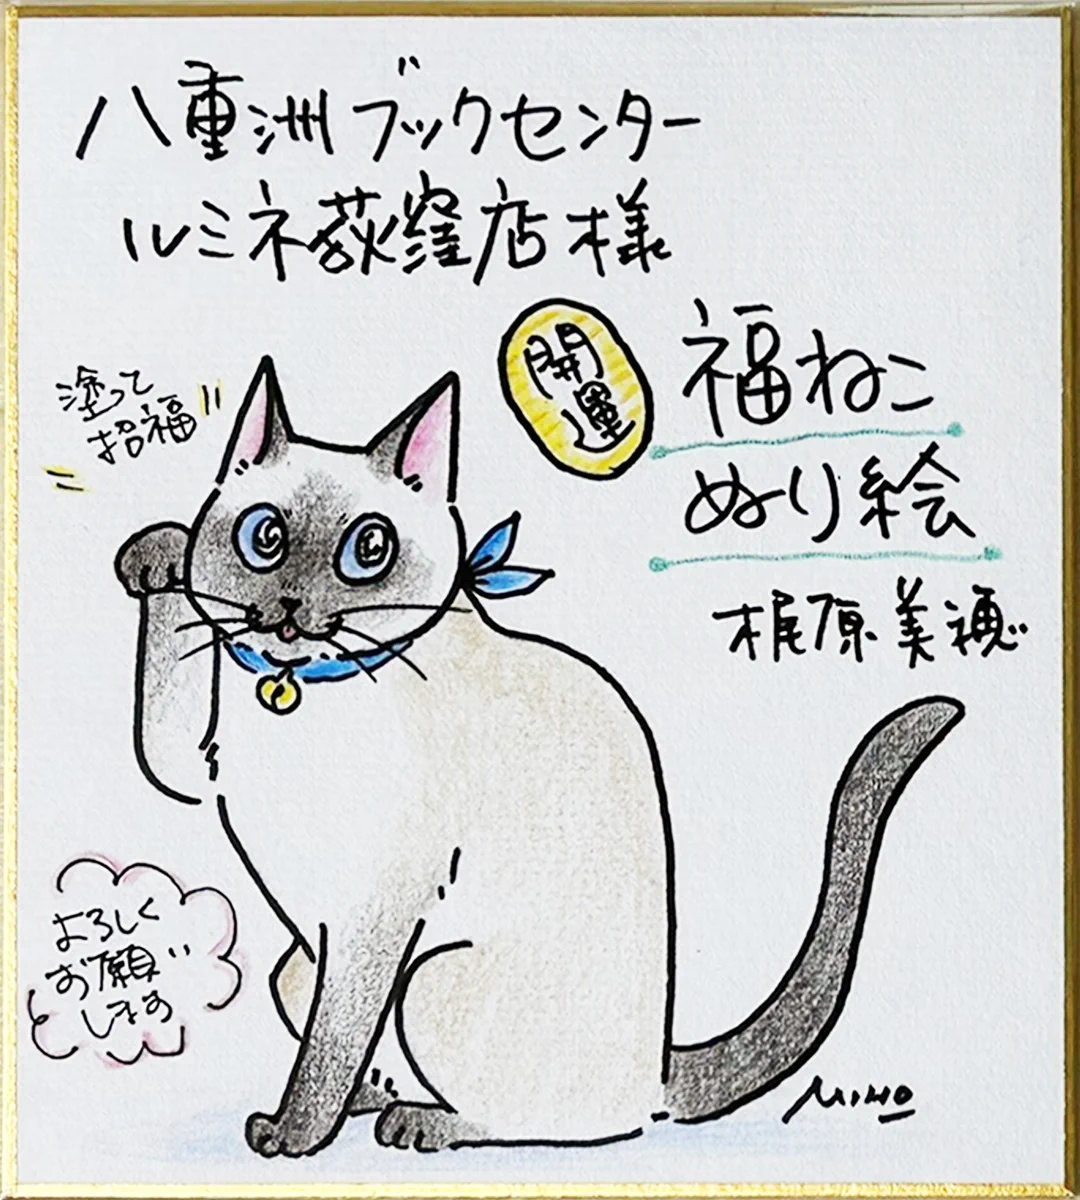 八重洲ブックセンター
ルミネ荻窪店様
開運
福ねこ
ぬり絵
梶原美穂
塗って
招福"
よろしく
お願い
します
MIHO